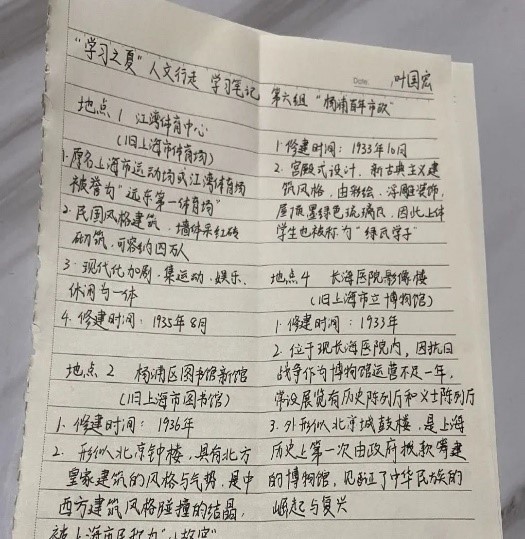 "学习之夏"人文行走 学习笔记 第六组"杨浦百年市政"
Date. 叶国宏
地点1 江湾体育中心
(旧上海市体育场)
1.原名上海市运动场或江湾体育场
被誉为"远东第一体育场"
2.民国风格建筑.墙体采红砖
砌筑,可容约四万人
3.现代化加剧.集运动.娱乐.
休闲为一体
4.修建时间:1935年8月
地点2 杨浦区图书馆新馆
(旧上海市图书馆)
1.修建时间:1936年
2.形似北京钟楼,具有北方
皇家建筑的风格与气势,是中
西方建筑风格碰撞的结晶,
被上海市民称为"小故宫"
1.修建时间:1933年10月
2.宫殿式设计.新古典主义建
筑风格.由彩绘.浮雕装饰,
屋顶墨绿色琉璃瓦,因此上体
学生也被称为"绿瓦学子"
地点4 长海医院影像楼
(旧上海市立博物馆)
1.修建时间:1933年
2.位于现长海医院内,因抗日
战争作为博物馆运营不足一年,
常设展览有历史陈列厅和义士陈列厅
3.外形似北京城鼓楼,是上海
历史上第一次由政府拨款筹建
的博物馆,见证了中华民族的
崛起与复兴